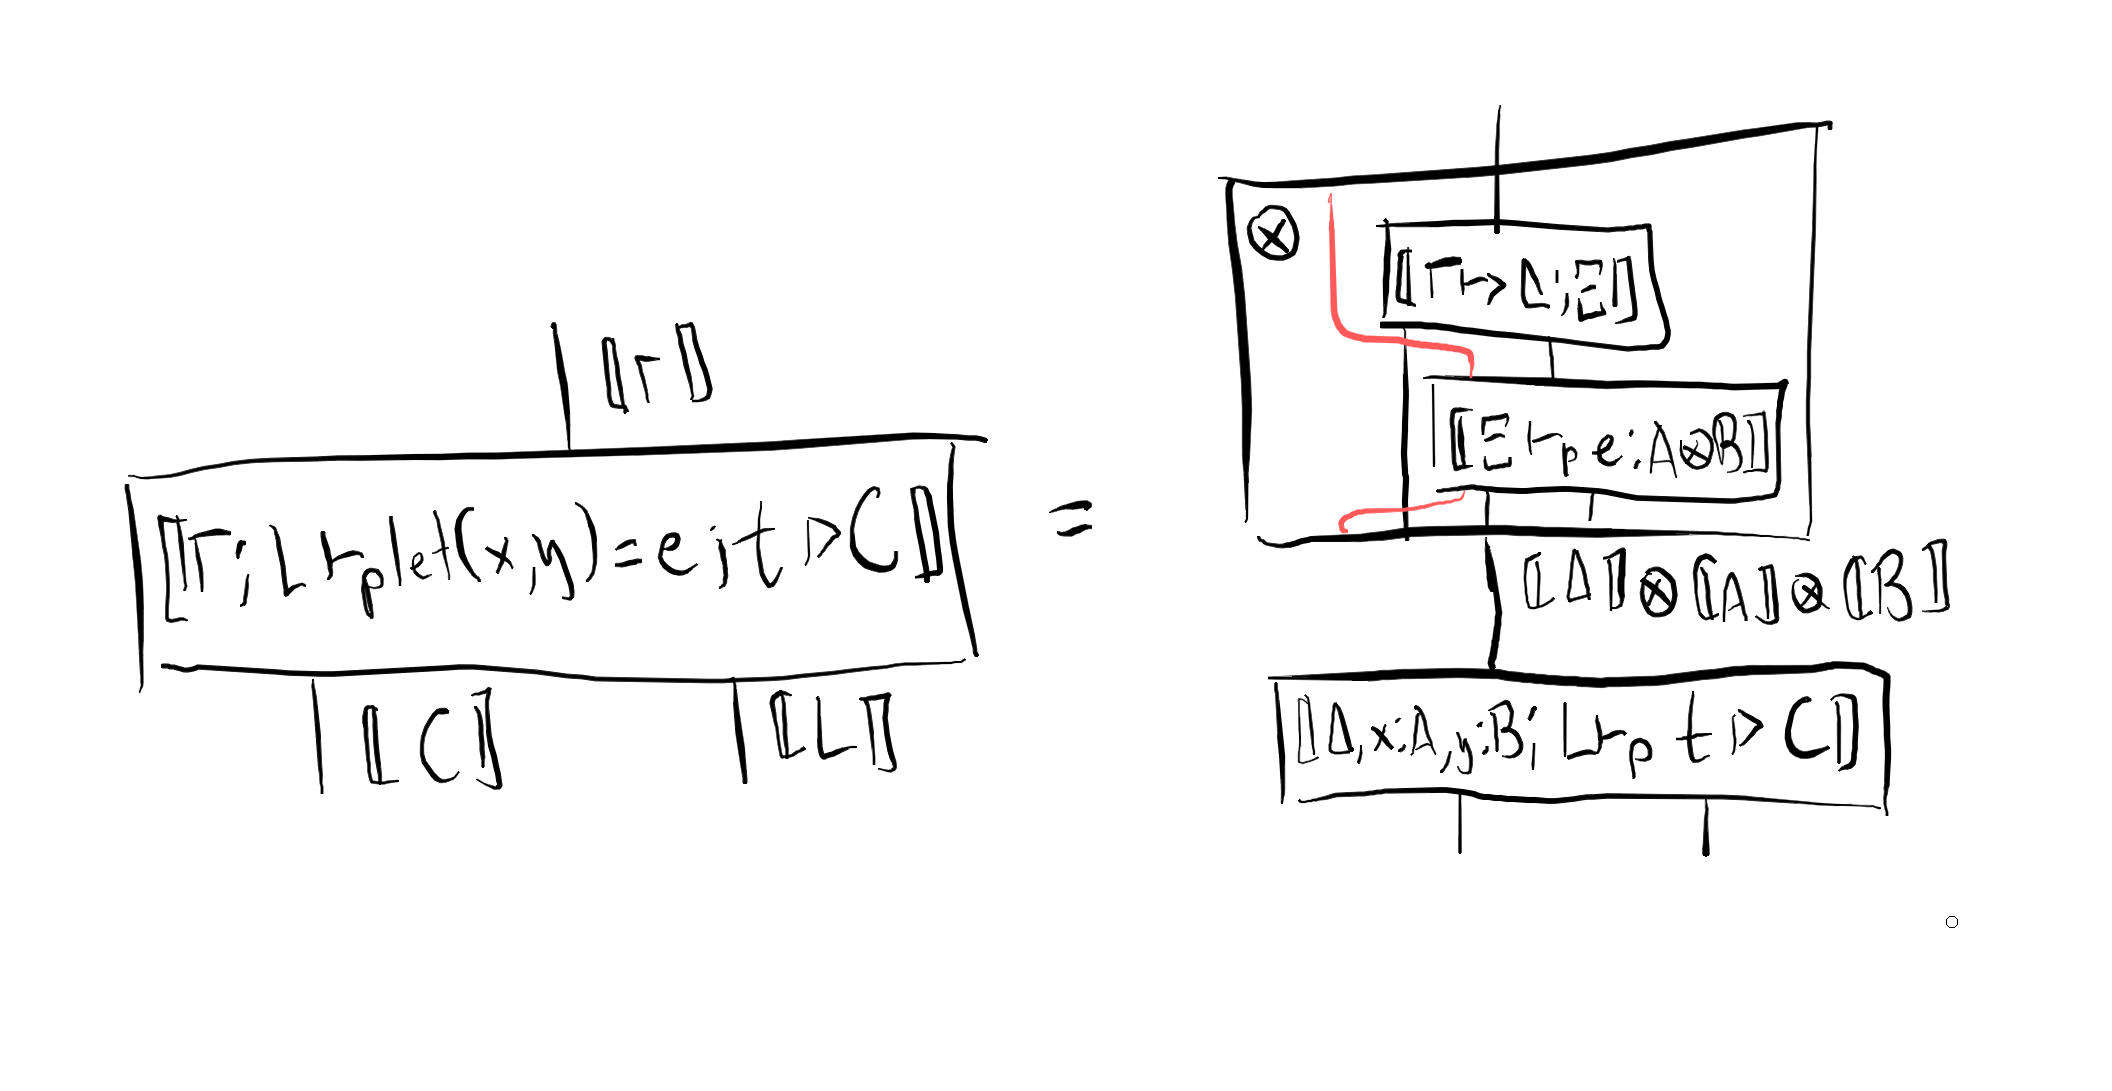 ⟦Γ⟧
⟦Γ; L ⊢ₚ let (x,y) = e; t ▷ C⟧
⟦C⟧ ⟦L⟧
=
⊗
⟦Γ ↦ Δ; Ξ⟧
⟦Ξ ⊢ₚ e : A⊗B⟧
⟦Δ⟧ ⊗ ⟦A⟧ ⊗ ⟦B⟧
⟦Δ, x:A, y:B; L ⊢ₚ t ▷ C⟧